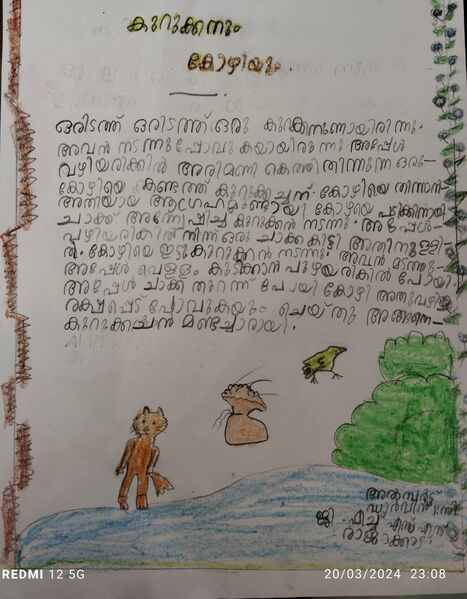 കുറുക്കനും
കോഴിയും.
ഒരിടത്ത് ഒരിടത്ത് ഒരു കുറുക്കനുണ്ടായിരുന്നു.
അവൻ നടന്നുപ്പോവുകയായിരുന്നു അപ്പേൾ
വഴിയരിക്കിൽ അരിമണി കൊത്തിതിന്നുന്ന ഒരു-
കോഴിയെ കണ്ടത്ത് കുറുക്കച്ചന്. കോഴിയെ തിന്നാൻ
അതിയായ ആഗ്രഹമുണ്ടായി കോഴിയെ പടിക്കിന്നായി
ചാക്ക് അന്വേഷിച്ച് കുറുക്കൻ നടന്നു. അപ്പേൾ-
പഴിയരിക്കിൽ നിന്ന് ഒരു ചാക്കുകിട്ടി അതിനുള്ളി
ൽ. കോഴിയെ ഇട്ടുകുറുക്കൻ നടന്നു. അവൻ മടത്തു-
അപ്പേൾ വെള്ളം കുടിക്കാൻ പുഴയരികിൽ പോയി
അപ്പേൾ ചാക്ക് തുറന്ന് പോയി കോഴി അതുവഴി
രക്ഷപ്പെട് പ്പോവുകയും ചെയ്തു അങ്ങനെ-
കുറുക്കച്ചൻ മണ്ടച്ചാരായി.
ആൽബർട്ട്
ജി. എച്ച് എസ് എസ്
രാജാക്കാട്
REDMI 12 5G
20/03/2024 23:08